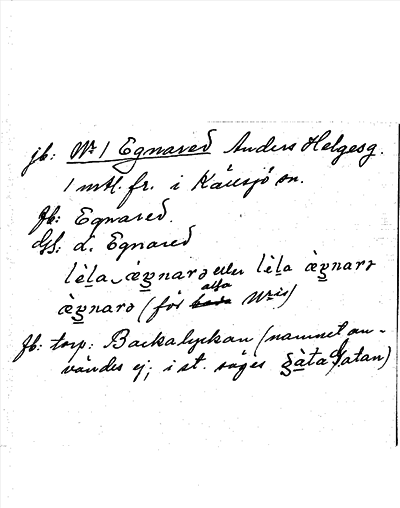 jb: Nr 1 Egnared Anders Helgesg.
1 mtl. fr. i Källsjö sn.
Jb: Egnared.
GS: d. Egnared
lὲla ægnarə eller lὲla ægnarə
ægnarə (för alla N:ris)
Jb: torp: Backalyckan (namnet an-
vändes ej; i st. säges gàta Gatan)